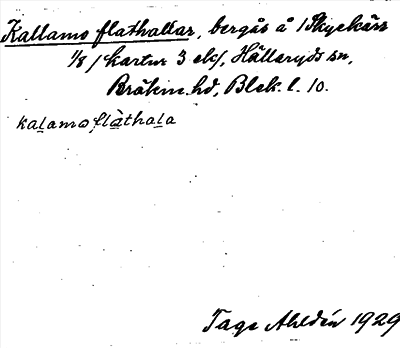 Kallamo flathallar, bergås å /Skyekärr
1/8 / kartur 3 ek/, Hällaryds sn,
Bräkne hd, Blek. l. 10.
kalamo flàthala
Tage Ahldén 1929